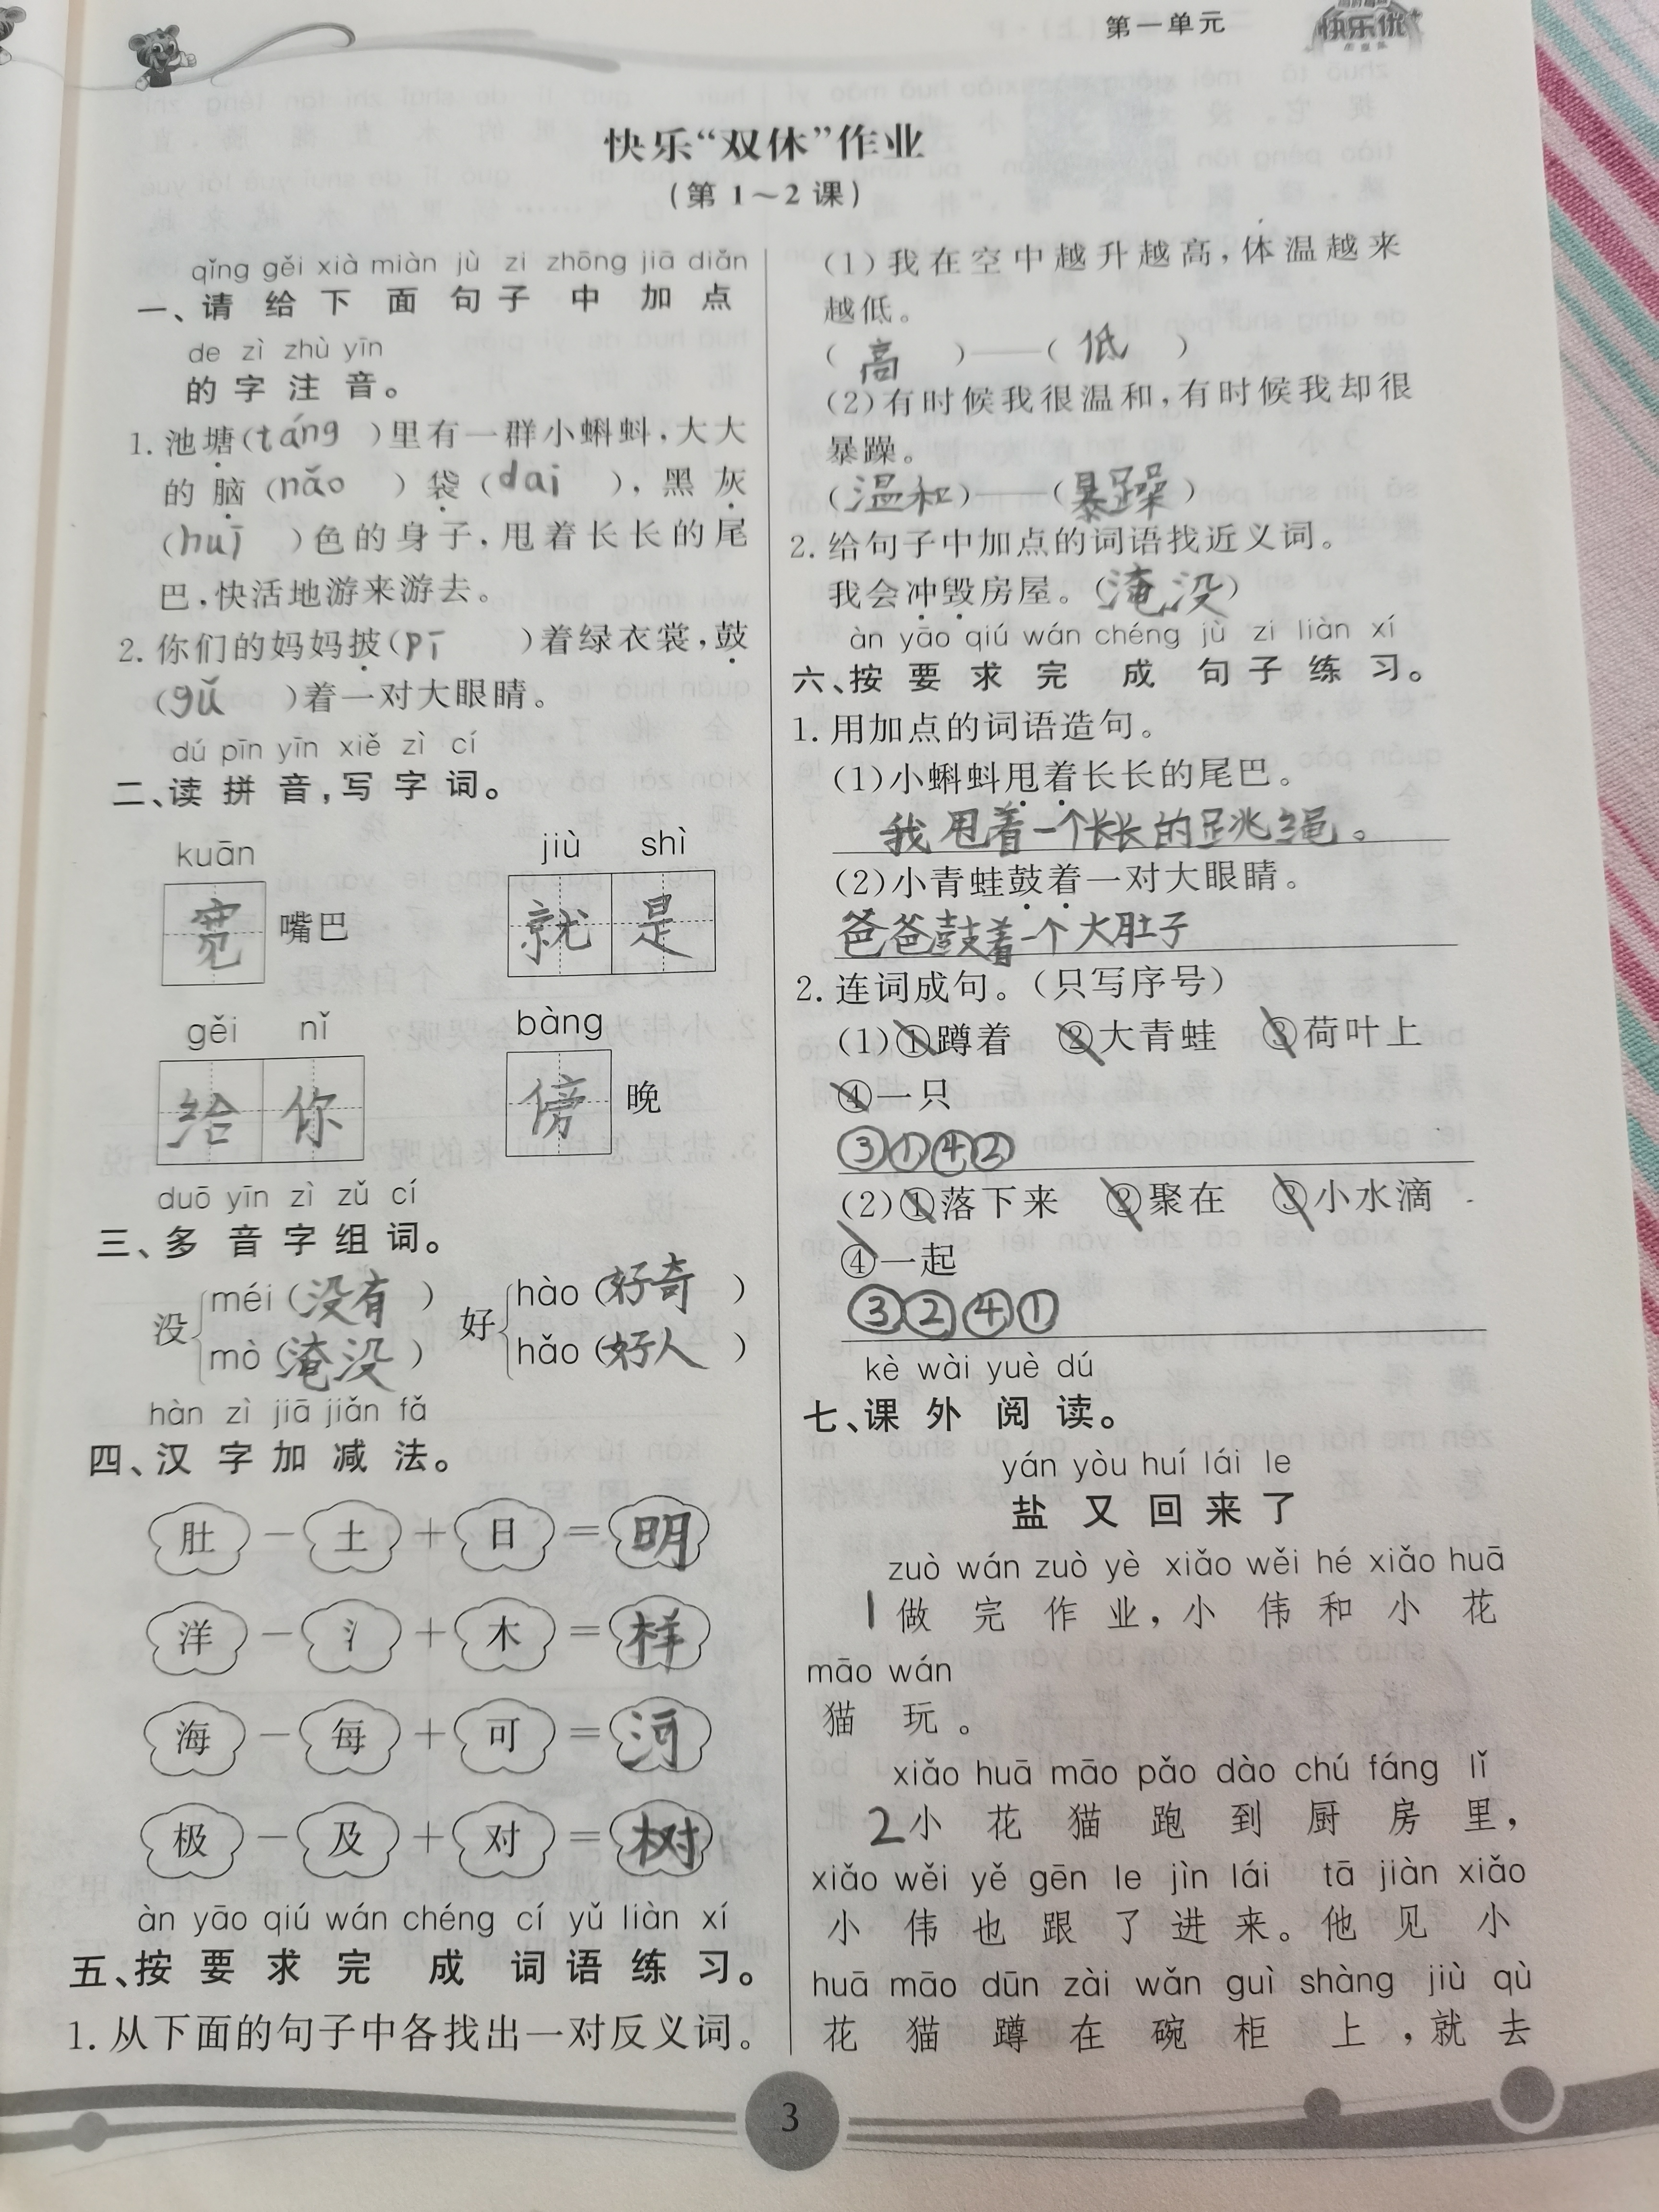 第一单元
快乐优
快乐“双休”作业
(第1~2课)
qǐng gěi xià miàn jù zi zhōng jiā diǎn
一、请给下面句子中加点
de zì zhù yīn
的字注音。
1. 池塘(táng)里有一群小蝌蚪,大大
的脑(nǎo)袋(dai),黑灰
(huī)色的身子,甩着长长的尾
巴,快活地游来游去。
2. 你们的妈妈披(pī)着绿衣裳,鼓
(gǔ)着一对大眼睛。
dú pīn yīn xiě zì cí
二、读拼音,写字词。
kuān jiù shì
宽嘴巴 就是
gěi nǐ bàng
给你 傍晚
duō yīn zì zǔ cí
三、多音字组词。
没 méi(没有) 好 hào(好奇)
mò(淹没) hǎo(好人)
hàn zì jiā jiǎn fǎ
四、汉字加减法。
肚-土+日=明
洋-氵+木=样
海-每+可=河
极-及+对=树
àn yāo qiú wán chéng cí yǔ liàn xí
五、按要求完成词语练习。
1. 从下面的句子中各找出一对反义词。
(1)我在空中越升越高,体温越来
越低。
(高)——(低)
(2)有时候我很温和,有时候我却很
暴躁。
(温和)——(暴躁)
2. 给句子中加点的词语找近义词。
我会冲毁房屋。(淹没)
àn yāo qiú wán chéng jù zi liàn xí
六、按要求完成句子练习。
1. 用加点的词语造句。
(1)小蝌蚪甩着长长的尾巴。
我甩着一个长长的跳绳。
(2)小青蛙鼓着一对大眼睛。
爸爸鼓着一个大肚子
2. 连词成句。(只写序号)
(1)①蹲着 ②大青蛙 ③荷叶上
④一只
③①④②
(2)①落下来 ②聚在 ③小水滴
④一起
③②④①
kè wài yuè dú
七、课外阅读。
yán yòu huí lái le
盐又回来了
zuò wán zuò yè xiǎo wěi hé xiǎo huā
1做完作业,小伟和小花
māo wán
猫玩。
xiǎo huā māo pǎo dào chú fáng lǐ
2小花猫跑到厨房里,
xiǎo wěi yě gēn le jìn lái tā jiàn xiǎo
小伟也跟了进来。他见小
huā māo dūn zài wǎn guì shàng jiù qù
花猫蹲在碗柜上,就去
3